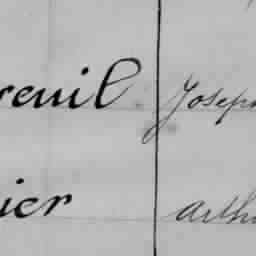 reuil Joseph
ier Arthu